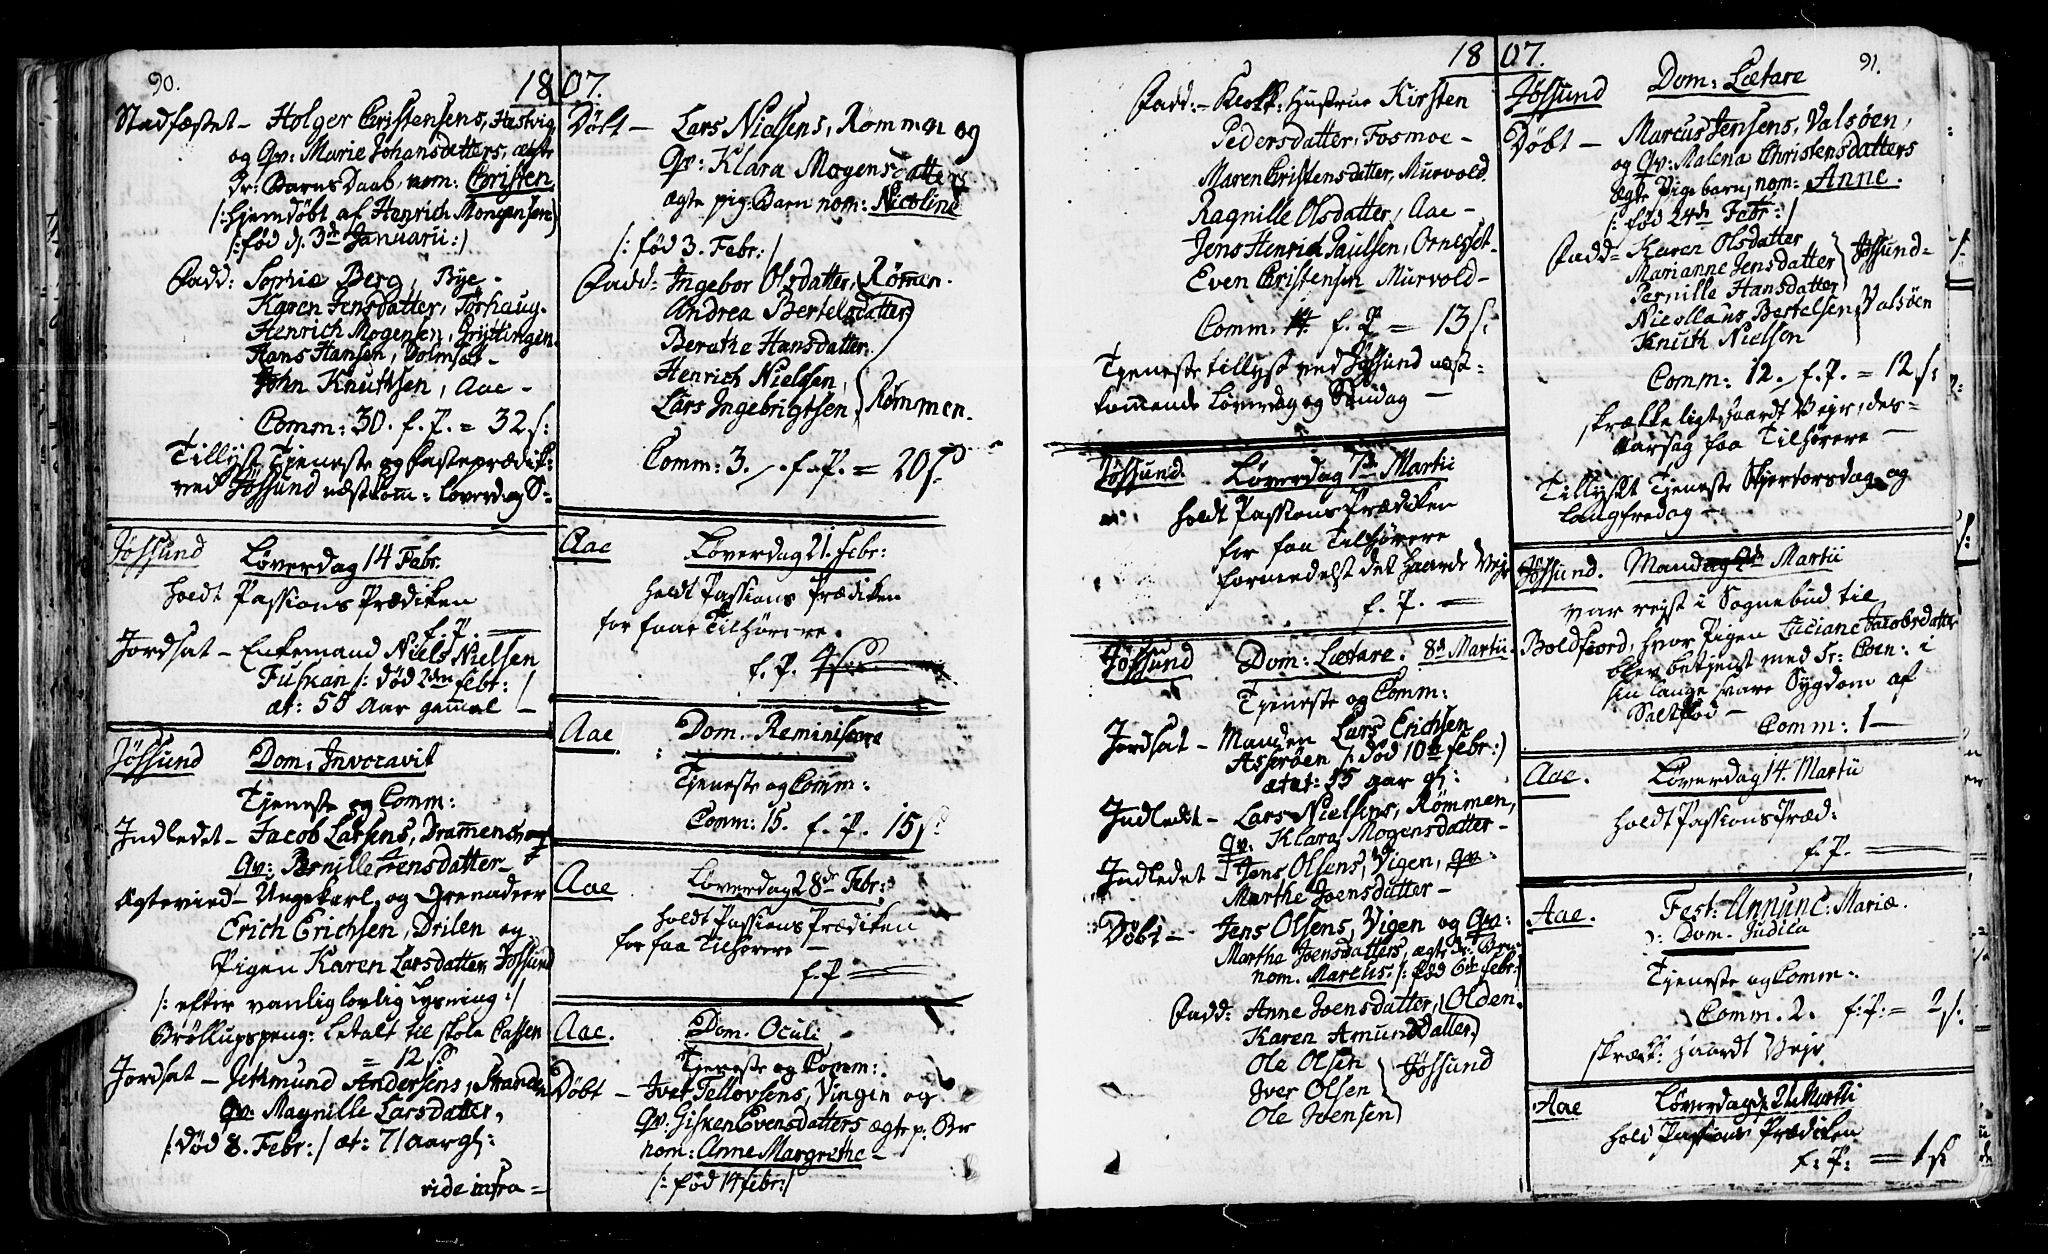 90.
1807.
Stadfæstet – Holger Christensens, Hestvig
og Qv: Marie Johansdatters, ægte
Dr: Barns Daab, nom: Christen
/: hjemdøbt af Henrich Mongensen)
/: fød d. 3de Januarii :/
Fadd: Sophie Berg, Bye –
Karen Jensdatter, Torhaug –
Henrich Mogensen,
Hans Hansen,
John Knuthsen, Aae –
Comm: 30. f. P. = 32 s:
Tillyst Tjeneste og Fasteprædik:
ved Jössund næstkomm: Løverdag S–
Jössund Løverdag 14 Febr.
holdt Passions Prædiken
f. P. —
Jordsat – Enkemand Niels Nielsen
Fuskan /: død 2den Febr: /
æt: 55 Aar gammel –
Jössund Dom: Invocavit
Tjeneste og Comm:
Indledet – Jacob Larsens,
Qv: Pernille Jensdatter –
Ægtevied – Ungekarl og Grenadeer
Erich Erichsen, Drilen og
Pigen Karen Larsdatter Jössund
/: efter vanlig lovlig Lysning :/
Bröllupspeng: betalt til Skole Cassen
= 12 s
Jordsat – Jetmund Andersens, Stranden
Qv: Magnille Larsdatter,
/: død 8. Febr: / æt: 71 aar gl:
vide infra –
Döbt – Lars Nielsens, Rømmen og
Qv: Klara Mogensdatters
ægte pig: Barn nom: Nicoline
/: fød 3. Febr: /
Fadd: Ingebor Olsdatter, Rømen.
Andrea Bertelsdatter
Berethe Hansdatter
Henrich Nielsen,
Lars Ingebrigtsen } Rømmen.
Comm: 3. f. P. = 20 s
Aae Løverdag 21. Febr:
holdt Passions Prædiken
for faae Tilhørere.
f. P. 4 s
Aae Dom. Reminiscere
Tjeneste og Comm:
Comm: 15. f. P. 15 s.
Aae Løverdag 28de Febr:
holdt Passions Prædiken
for faa Tilhørere –
f. P. —
Aae. Dom. Oculi
Tjeneste og Comm:
Döbt – Iver Tellovsens, Vingin og
Qv: Gisken Evensdatters ægte p: Br
nom: Anne Margrethe –
/: fød 14 Febr: /
1807.
91.
Fadd: – Hustrue Kirsten
Pedersdatter, Fosmoe –
Maren Christensdatter, Murvold.
Ragnille Olsdatter, Aae –
Jens Henrich Paulsen, Ornesset –
Even Christensen Murvold –
Comm: 14. f. P = 13 s:
Tjeneste tillyst ved Jössund næst-
kommende Løverdag og Søndag –
Jössund. Løverdag 7de Martii
holdt Passions Prædiken
for faa Tilhørere
formedelst det haarde Vejr
f. P. —
Jössund Dom: Lætare. 8de Martii
Tjeneste og Comm:
Jordsat – Manden Lars Erichsen
Asserøen /: død 10de Febr: /
ætat: 55 aar gl:
Indledet – Lars Nielsens, Rømmen,
Qv: Klara Mogensdatter –
Indledet – Jens Olsens, Vigen, Qv:
Marthe Joensdatter –
Döbt – Jens Olsens, Vigen og Qv:
Marthe Joensdatters, ægte Dr: Brn
nom. /: fød 6te Febr: /
Fadd: Anne Joensdatter, Olden.
Karen Amundsdatter
Ole Olsen
Iver Olsen } Jössund
Ole Joensen
Jössund Dom: Lætare
Döbt – Marcus Jensens, Valsøen,
og Qv: Malena Christensdatters
ægte Pigebarn, nom: Anne.
/: fød 24de Febr: /
Fadd: Karen Olsdatter
Marianne Jensdatter } Jössund –
Pernille Hansdatter
Nicollaus Bertelsen, } Valsøen
Knuth Nielsen
Comm: 12. f. P. = 12 s:
skrækkeligt haardt Vejr, des-
aarsag faa Tilhørere –
Tillyst Tjeneste Skjertorsdag og
Langfredag –
Jössund. Mandag 9de Martii
var rejst i Sognebud til
Boldfiord, hvor Pigen Luciane Jacobsdatter
blev betjent med Sr: Coen: i
sin lange svare Sygdom af
Saltflod –
Comm: 1 –
Aae. Løverdag 14. Martii
holdt Passions Præd:
f. P. —
Aae. Fest: Annunc: Mariæ.
Dom. Judica
Tjeneste og Comm:
Comm. 2. f: P: = 2 s:
skræk: haardt Vejr
Aae Løverdag d: 21 Martii
hold Passions Prædiken
f: P: = 1 s: